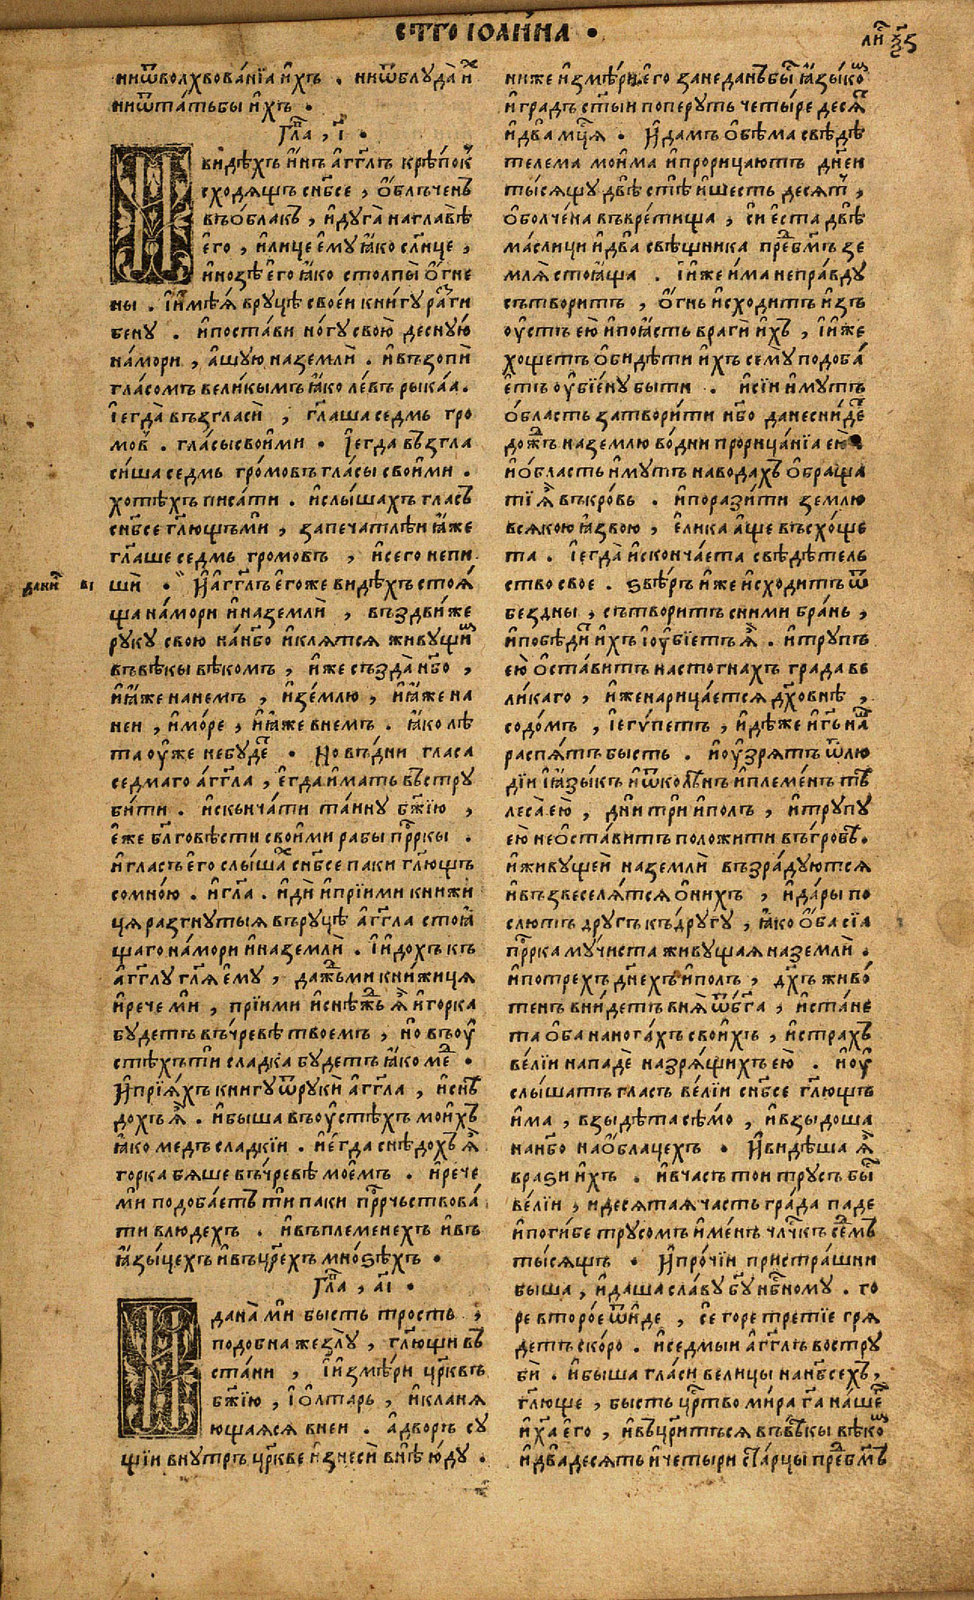 ст҃го іѡа́нна •
ли҇ ѯ҃ѕ
ниѿволхвова́нїа и҆́хъ . ниѿблуда̀ и҆х
ниѿта́тьбы и҆́хъ •
Гл҃а , і҃ •
И видѣхъ и҆́нъ а҆́гг҃лъ крѣ́покъ
сходя́щь снб҃се , ѻ҆бле́ченъ
въѻ҆́блакъ , и҆дуга̀ наглавѣ̀
е҆го̀ , и҆лицѐ е҆му̀ ꙗ҆́ко сл҃нце ,
и҆но́зѣ е҆го̀ ꙗ҆́ко столпы̀ ѻ҆́гне
ны . І҆и҆мѣ́ѧ вруцѣ̀ свое́и кни́гу ра́зги
бену . и҆поста́ви но́гу свою̀ десную
на́мори , а҆шу́ю наземлѝ . и҆възопѝ
гла́сомъ вели́кымъ ꙗ҆́ко ле́въ рыка́ѧ.
І҆егда̀ възгласѝ , гл҃аша седмь гро
мов . гла́сы свои́ми • І҆егда̀ възгла
си́ша седмь гро́мовъ гла́сы свои́ми .
хотѣ́хъ писа́ти . и҆слы́шахъ гласъ
снб҃се гл҃ющъ ми , запечатлѣ́и ꙗ҆́же
гл҃аше седмь громовъ , и҆сего непи
шѝ . И҆а҆́гг҃лъ е҆го́же видѣ́хъ стоѧ́
дани҇ в҃і
ща на́мори и҆наземлѝ , въздви́же
руку свою̀ на́нб҃о и҆клѧ́тсѧ живущи
въвѣ́кы вѣ́комъ , и҆́же създа̀ нб҃о ,
и҆ꙗ҆́же нанемъ , и҆зе́млю , и҆ꙗ҆́же на
неи , и҆мо́ре , и҆ꙗ҆́же внемъ . ꙗ҆́ко лѣ́
та оу҆́же небуде • Но въдни гласа
седмаго а҆́гг҃ла , е҆гда̀ и҆́мать въстру
бити . и҆сконча́ти та́ину бж҃їю ,
е҆́же бл҃говѣсти свои́ми рабы пр҃ркы .
и҆гласъ е҆го̀ слы́ша снб҃се паки гл҃ющъ
сомно́ю . и҆гл҃а . и҆дѝ и҆прїими книжи
цѧ разгнутыѧ въруцѣ̀ а҆́гг҃ла стоꙗ
щаго на́мори и҆наземлѝ . І҆идохъ къ
а҆́гг҃лу гл҃ѧ е҆му̀ , даждь ми книжицѧ
и҆рече ми , прїими и҆снѣ́жъ ѧ҆̀ и҆горка
будетъ въчревѣ твоемъ , но въоу҆
стѣ́хъ ти сладка будетъ ꙗ҆́ко ме •
И҆прїѧ́хъ книгу ѿрукѝ а҆́гг҃ла , и҆снѣ
дохъ ѧ҆̀ . и҆быша въоу҆стѣхъ мои́хъ
ꙗ҆́ко медъ сладкїи . и҆е҆гда снѣ́дохъ ѧ҆̀
горка бѧше въчревѣ̀ мое́мъ . и҆рече
ми подоба́етъ ти паки пр҃рчьствова́
ти влюдехъ . и҆въплеменехъ и҆въ
ꙗ҆зы́цехъ и҆въцр҃ехъ мно́ѕѣхъ •
Гл҃а , а҃і •
И дана̀ ми бысть трость ,
подобна жезлу , гл҃ющи въ
ста́ни , І҆измѣ́ри цр҃квь
бж҃їю , І҆ѻ҆лтарь , и҆кланѧ
ющаѧсѧ внеи . а҆дворъ су
щїи внутрь цр҃кве и҆знесѝ внѣ̀ ю҆ду .
ниже и҆змѣ́ри е҆го занеданъ бы ꙗ҆зы́ко
и҆градъ ст҃ыи поперуть четы́ре десѧ
и҆два мц҃ѧ . И҆дамъ ѻ҆бѣ́ма свѣдѣ́
телема мои́ма и҆прорицаютъ дн҃еи
ты́сѧщу двѣ̀ стѣ̀ и҆шесть десѧт ,
ѻ҆болче́на въвре́тища , си е҆́ста двѣ̀
ма́слици и҆два свѣщника пред бг҃мъ зе
млѧ̀ стоꙗ҆ща . І҆иже и҆ма непра́вду
сътворитъ , ѻ҆́гнь и҆схо́дитъ и҆зъ
оу҆стъ ею̀ и҆поꙗ҆́сть врагѝ и҆́хъ , І҆иже
хощетъ ѻ҆би́дѣти и҆́хъ сему̀ подоба́
етъ оу҆бїе́ну быти . и҆сїи и҆́мутъ
ѻ҆́бласть затвори́ти нб҃о да неснѝде
дождъ наземлю во́дни прорица́нїа ею
и҆ѻ҆́бласть и҆́мутъ наводахъ ѻ҆браща
ти ѧ҆̀ въкро́вь . и҆порази́ти землю
всѧ́кою ꙗ҆́звою , е҆ли́ка а҆́ще въсхо́ще
та . І҆егда̀ и҆сконча́ета свѣдѣтель
ство свое . ѕвѣ́рь и҆́же и҆схо́дитъ ѿ
бездны , сътвори́тъ сни́ми бра́нь ,
и҆побѣ́дитъ и҆́хъ І҆оу҆бїетъ ѧ҆̀ . и҆трупъ
ею̀ ѻ҆ста́витъ настогнахъ града ве
ли́каго , и҆́же нарица́етсѧ дх҃о́внѣ ,
содо́мъ , І҆егѵ́петъ , и҆дѣ́же и҆гь на
распѧ́тъ бысть . и҆оу҆зрѧ́тъ ѿлю
дїи І҆ꙗ҆зы́къ и҆ѿколѣ́нъ и҆племе́нъ тѣ
леса ею̀ , дни три и҆полъ , и҆трупу
ею̀ неѻ҆ста́вить положити въгробъ.
и҆живущеи наземлѝ възра́дуютсѧ
и҆възвеселѧ́тсѧ ѻ҆нихъ , и҆да́ры по
слютъ другъ къ дру́гу , ꙗ҆́ко ѻ҆́ба сїа
пр҃рка мучиста живущаѧ наземлѝ .
и҆потрехъ дн҃ехъ и҆полъ , дх҃ъ живо́
тенъ вни́детъ внѧ̀ ѿбг҃а , и҆ста́не
та ѻ҆ба нано́гахъ свои́хъ , и҆страхъ
ве́лїи нападе назрѧ́щихъ ею̀ . и҆оу҆
слы́шатъ гласъ ве́лїи снб҃се гл҃ющъ
и҆ма , взы́дѣта сѣмо , и҆взыдоша
нанб҃о наѻ҆блацехъ . И҆видѣша ѧ҆̀
враѕи и҆́хъ . и҆вчасъ тои трусъ бы
ве́лїи , и҆десѧтаѧ часть гра́да паде
и҆погибе трусомъ и҆ме́нъ чл҃чкъ седмь
ты́сѧщъ . И҆про́чїи пристра́шни
быша , и҆даша славу бг҃у нб҃ному . го
ре второ́е ѿи́де , се горе третїе грѧ
детъ ско́ро . и҆седмыи а҆́гг҃лъ востру
бѝ . и҆быша гласи велицы нанб҃сехъ,
гл҃юще , бысть цр҃тво мира га наше
и҆ха е҆го , и҆въцритьсѧ въвѣкы вѣко
и҆двадесѧть и҆четыри старцы пред бг҃мъ